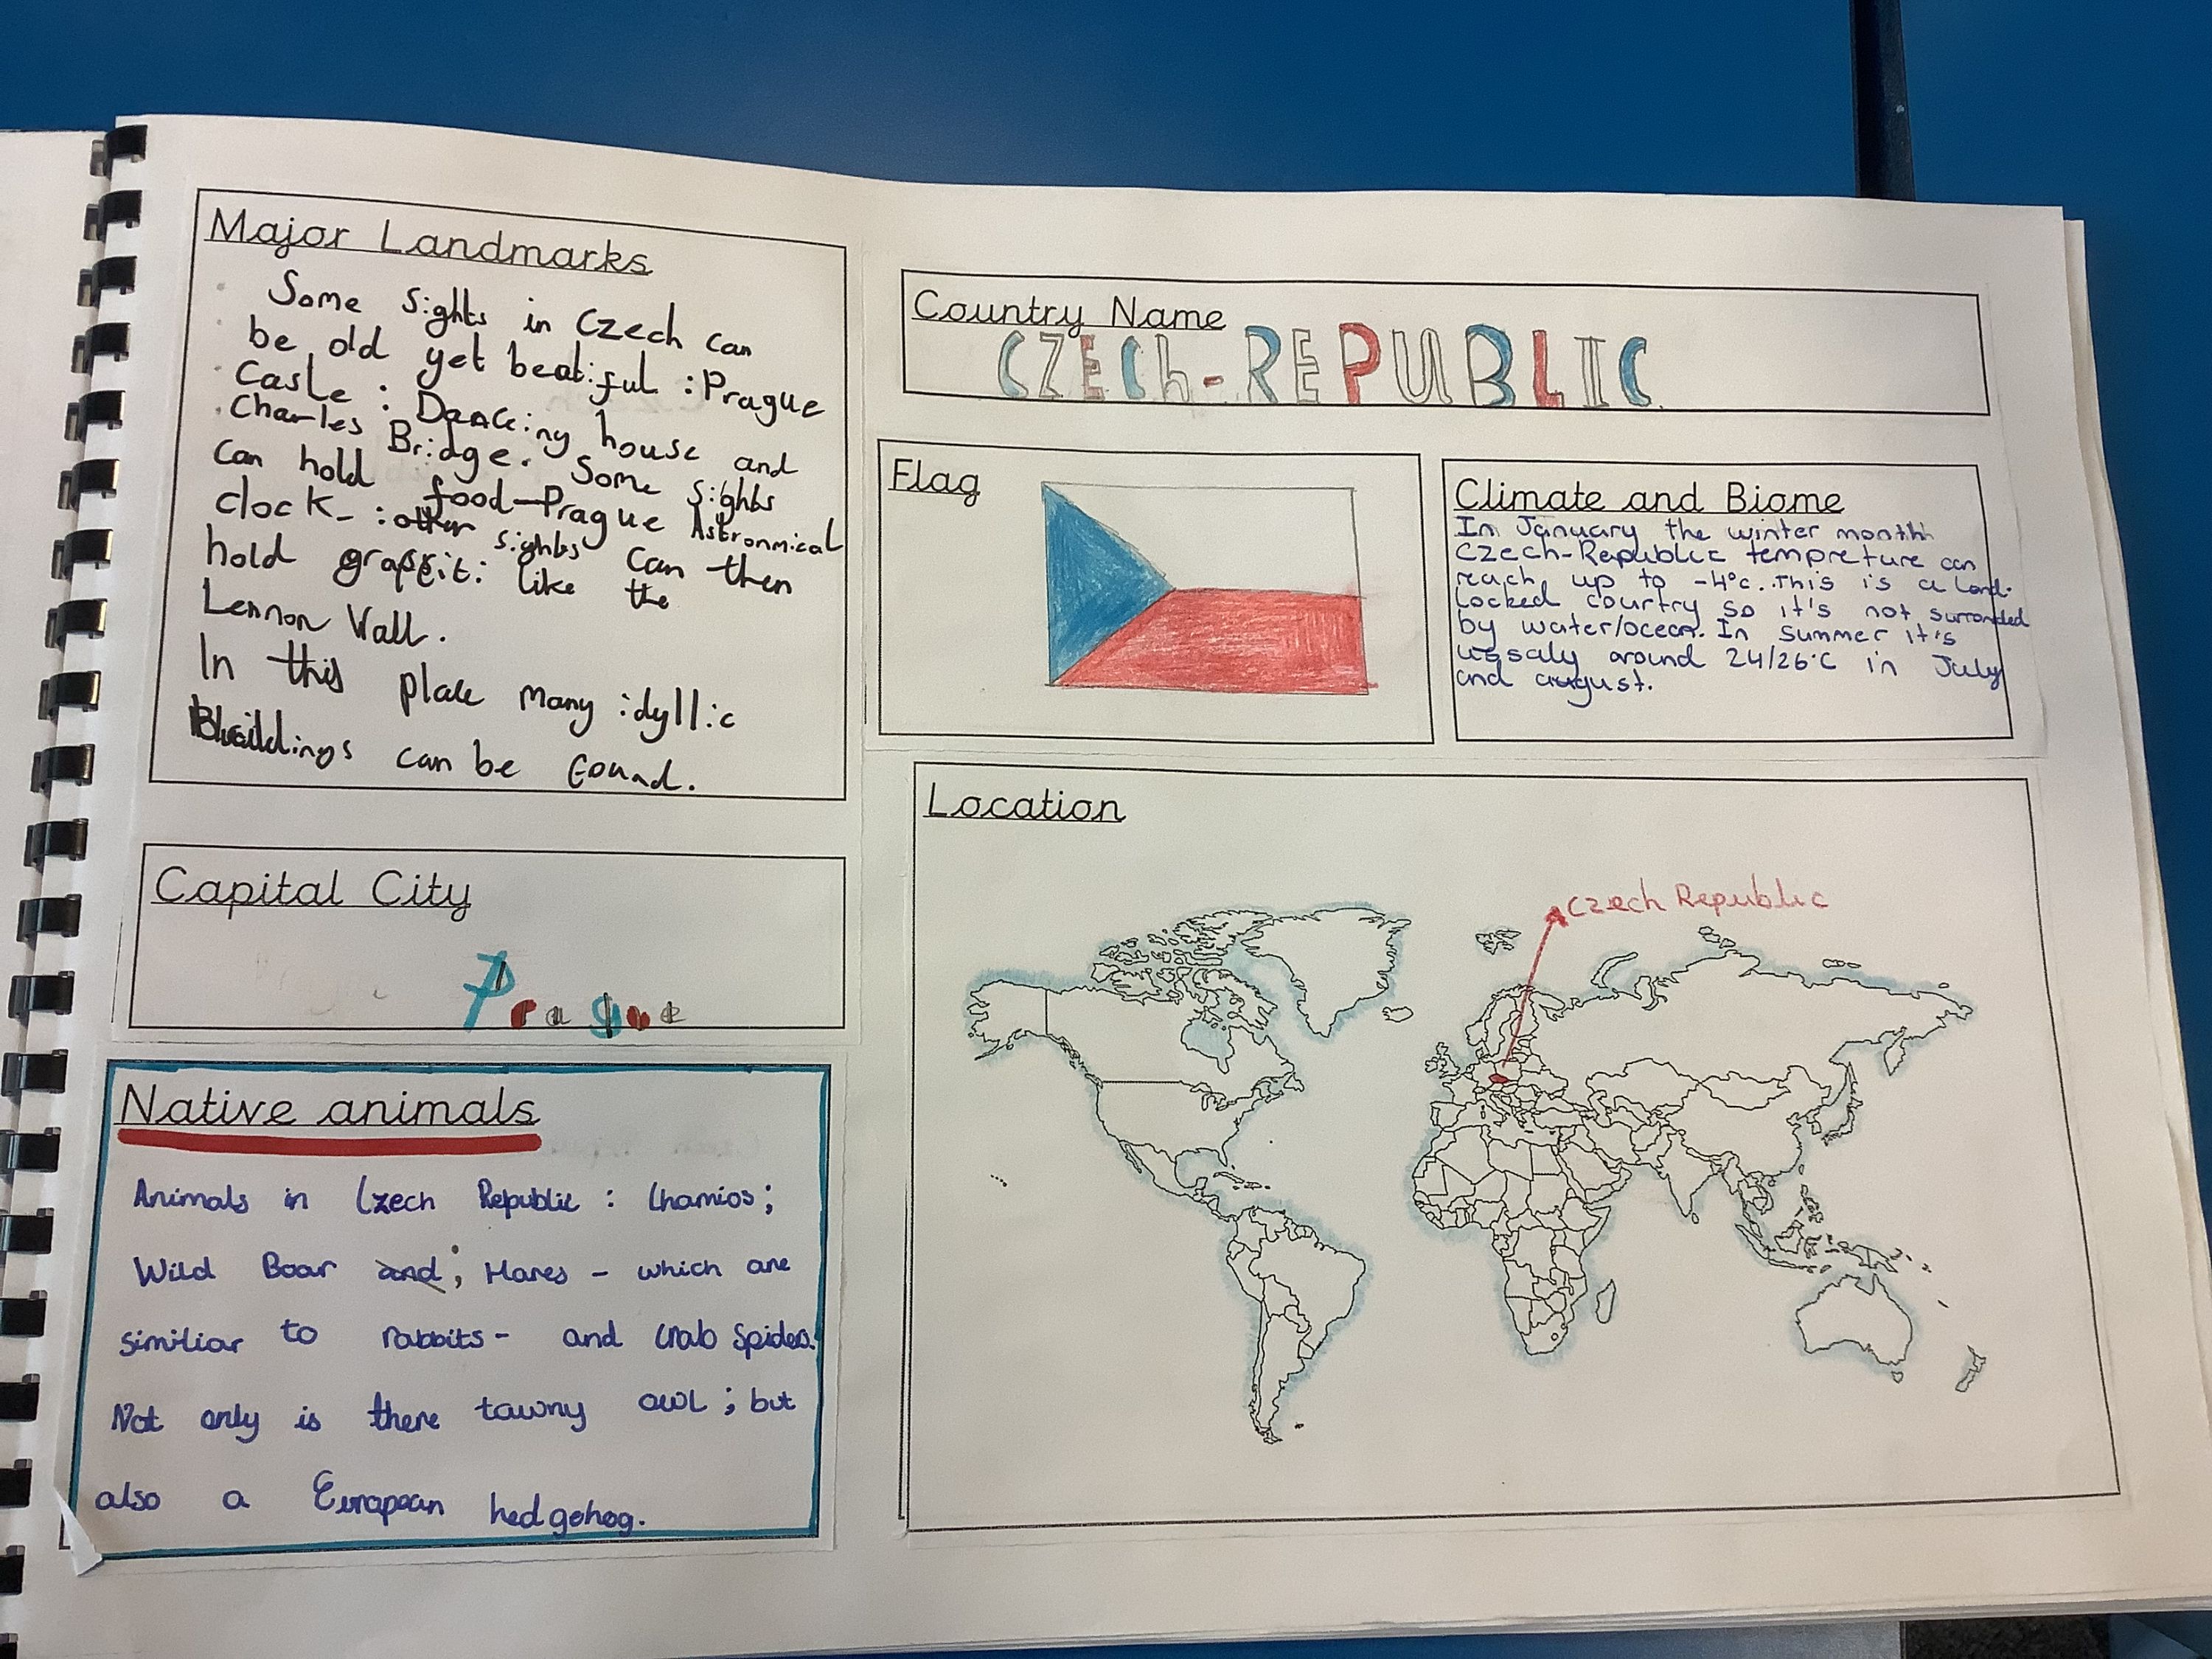 Major Landmarks
Some sights in Czech can
be old yet beatiful : Prague
Casle : Dancing house and
Charles Bridge. Some sights
can hold food - Prague Astronmical
clock - : other sights can then
hold graffiti like the
Lennon Wall.
In this place many idyllic
Buildings can be found.
Capital City
Prague
Native animals
Animals in Czech Republic : Chamios;
Wild Boar and ; Hares - which are
similiar to rabbits - and crab spiders.
Not only is there tawny owl ; but
also a European hedgehog.
Country Name
CZECh-REPUBLIC
Flag
Climate and Biome
In January the winter month
Czech-Republic tempreture can
reach up to -4°c. This is a land-
locked courtry so it's not surronded
by water/ocean. In summer it's
ussaly around 24/26°C in July
and august.
Location
Czech Republic